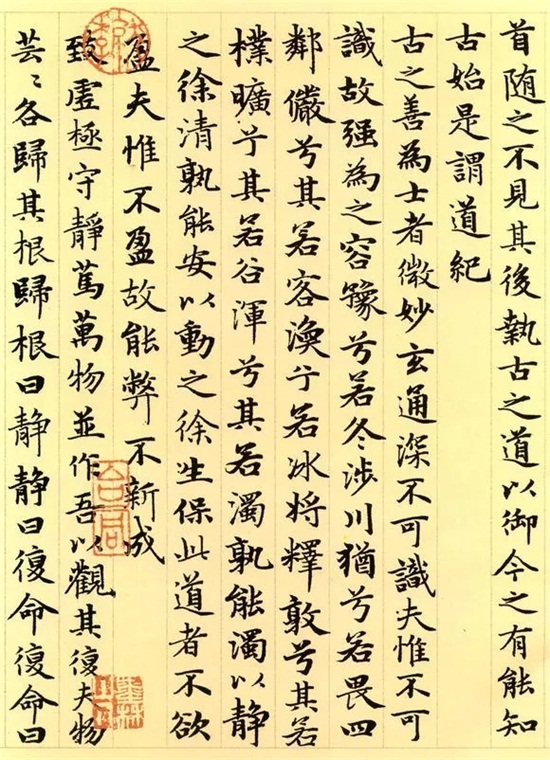 首随之不見其後執古之道以御今之有能知
古始是謂道紀
古之善為士者微妙玄通深不可識夫惟不可
識故强為之容豫兮若冬涉川猶兮若畏四
鄰儼兮其若客渙兮若冰將釋敦兮其若
樸曠兮其若谷渾兮其若濁孰能濁以静
之徐清孰能安以動之徐生保此道者不欲
盈夫惟不盈故能弊不新成
致虛極守静篤萬物並作吾以觀其復夫物
芸〻各歸其根歸根曰静静曰復命復命曰